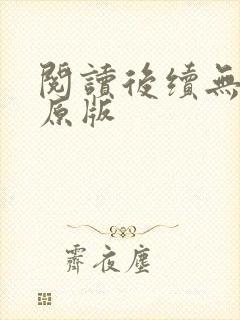 閱讀後續無
原版
霽夜塵